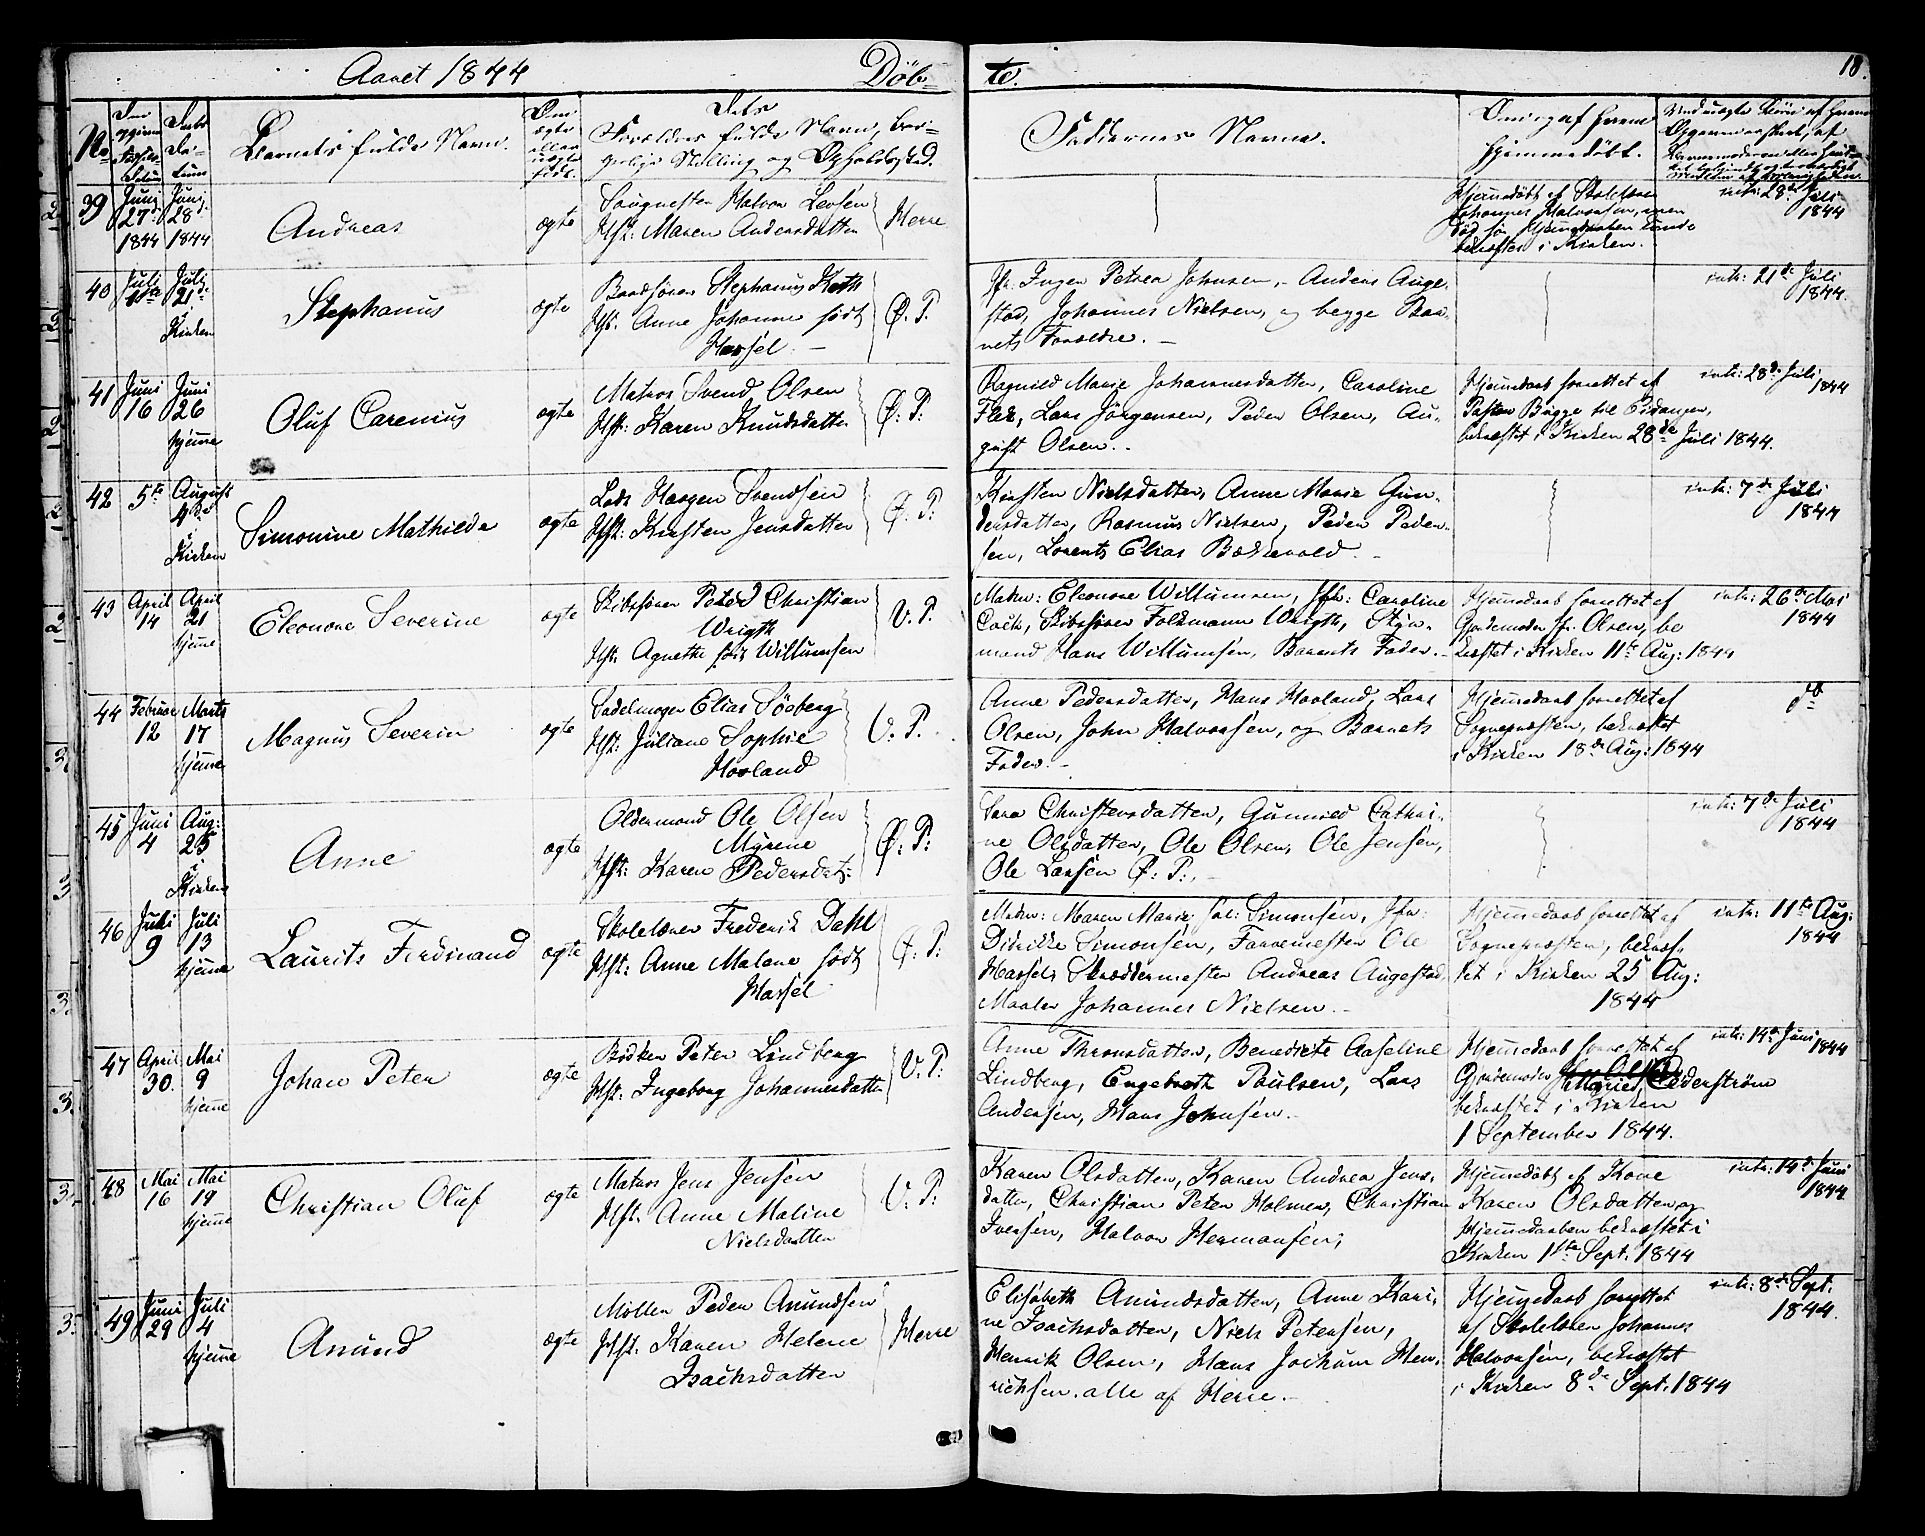 Aaret 1844 Döb= te. 18.
No
Barnets fulde Navn.
Forældres fulde Navn, bor=
gerlige Stilling og Opholdssted.
Faddernes Navne.
hjemmedöbt.
39 Juni 27de 1844 Juni 28 1844 Andreas ægte
Halvor Levsen
Hst: Maren Andersdatter Herre
Hjemdöbt af Skolelærer
Johannes Halvorsen, men
död før Hjemdaaben kunde
bekræftes i Kirken.
intr: 28de Juli
1844
40 Juli 21de i Kirken Stephanus ægte
Stephanus Koth
Hst. Anne Johanne födt
Hassel. Ø. P.
Jfr. Inger Petrea Johnsen, Anders Auge-
stad, Johannes Nielsen, og begge Bar-
nets Forældre.
intr: 21de Juli
1844.
41 Juni 16 Juni 26 hjemme Oluf Carenius ægte
Matros Svend Olsen
Hst: Karen Knudsdatter Ø: P:
Ragnild Marie Johannesdatter, Caroline
Flor, Lars Jörgensen, Peder Olsen, Au-
gust Olsen.
Hjemdaab forrettet af
Pastor Bugge til Eidanger,
bekræftet i Kirken 28de Juli 1844.
intr: 28de Juli
1844
42 5te August 4de i Kirken Simonine Mathilde ægte
Lods Haagen Svendsen
Hst: Kirsten Jensdatter Ø. P:
Kirsten Nielsdatter, Anne Marie Gun-
dersdatter, Rasmus Nielsen, Peder Peder-
sen, Lorents Elias Bækkevold.
intr: 7de Juli
1844
43 April 14 April 21 hjemme Eleonore Severine ægte
Skibsförer Peter Christian
Wrigth
Hst: Agnethe födt Willumsen V. P.
Mdm: Eleonore Willumsen, Jfr: Caroline
Coch, Skibsförer Folkmann Wrigth, Styr-
mand Hans Willumsen, Barnets Fader.
Hjemdaab forrettet af
Gjordemoder Jfr. Olsen, be
kræftet i Kirken 11te Aug: 1844
intr: 26de Mai
1844
44 Februar 12 Marts 17 hjemme Magnus Severin ægte
Sadelmager Elias Söeberg
Hst: Juliane Sophie
Hovland V. P.
Anne Pedersdatter, Hans Hovland, Lars
Olsen, John Halvorsen, og Barnets
Fader.
Hjemdaab forrettet af
Sognepræsten, bekræftet
i Kirken 18de Aug: 1844
do
45 Juni 4 Aug: 25 i Kirken Anne ægte
Oldermand Ole Olsen
Myrene
Hst: Karen Pedersdat: Ø: P:
Sara Christensdatter, Gunild Cathri-
ne Olsdatter, Ole Olsen, Ole Jensen,
Ole Larsen Ø: P:.
intr: 7de Juli
1844
46 Juli 9 Juli 13 hjemme Laurits Ferdinand ægte
Skolelærer Frederik Dahl
Hst: Anne Malene födt
Hassel Ø. P:
Mdm: Maren Marie Simonsen, Jfr:
Didrikke Simonsen, Farvemester Ole
Hassel, Skræddermester Andreas Augestad,
Maaler Johannes Nielsen.
Hjemmedaab forrettet af
Sognepræsten, bekræf-
tet i Kirken 25 Aug:
1844
intr: 11te Aug:
1844
47 April 30. Mai 9 hjemme Johan Peter ægte
Bödker Peter Lindberg
Hst: Ingeborg Johannesdatter V. P:
Anne Thronsdatter, Benedicte Aaseline
Lindberg, Engebreth Paulsen, Lars
Andersen, Hans Johnsen.
Hjemmedaab forrettet af
Gjordemoder Cederström
bekræftet i Kirken
1 September 1844.
intr: 14de Juni
1844
48 Mai 16 Mai 19 hjemme Christian Oluf ægte
Matros Jens Jensen
Hst. Anne Maline
Nielsdatter V. P:
Karen Olsdatter, Karen Andrea Jens-
datter, Christian Peter Holmer, Christian
Iversen, Halvor Hermansen,
Hjemmedöbt af Kone
Karen Olsdatter, og
Hjemmedaaben bekræftet i
Kirken 1ste Sept: 1844
intr: 14de Juni
1844
49 Juni 29 Juli 4 hjemme Amund ægte
Möller Peder Amundsen
Hst. Karen Helene
Isachsdatter Herre
Elisabeth Amundsdatter, Anne Kari-
ne Isachsdatter, Niels Petersen,
Henrik Olsen, Hans Jochum Hen-
richsen. alle af Herre.
Hjemmedaab forrettet
af Skolelærer Johannes
Halvorsen, bekræftet
i Kirken 8de Sept. 1844
intr: 8de Sept.
1844.